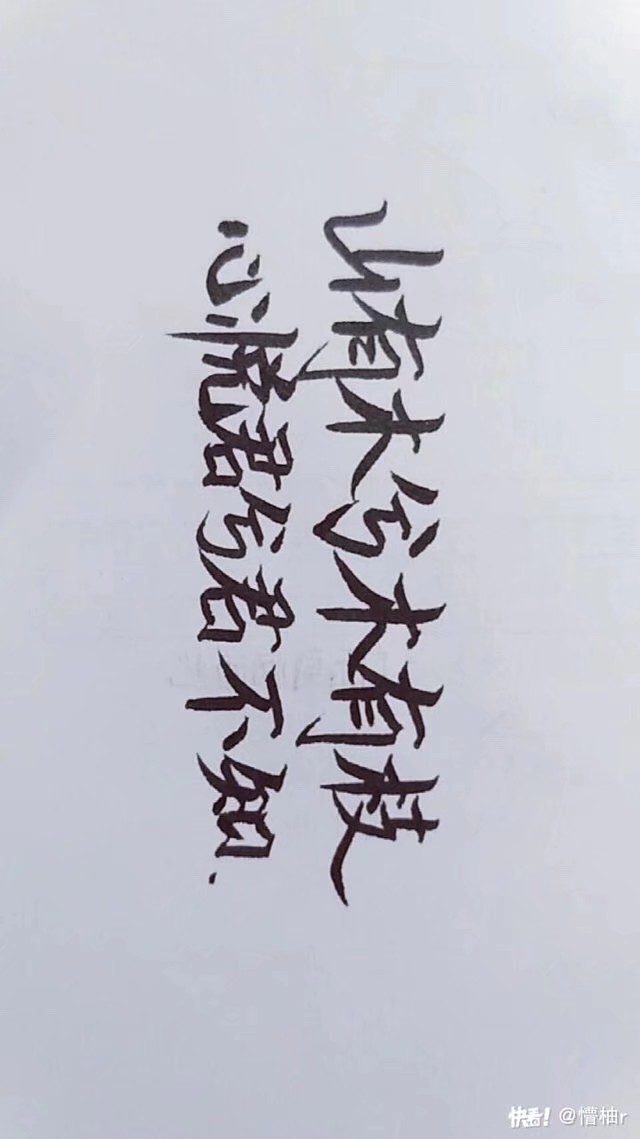 山有木兮木有枝
心悦君兮君不知.
快看! @懵柚r